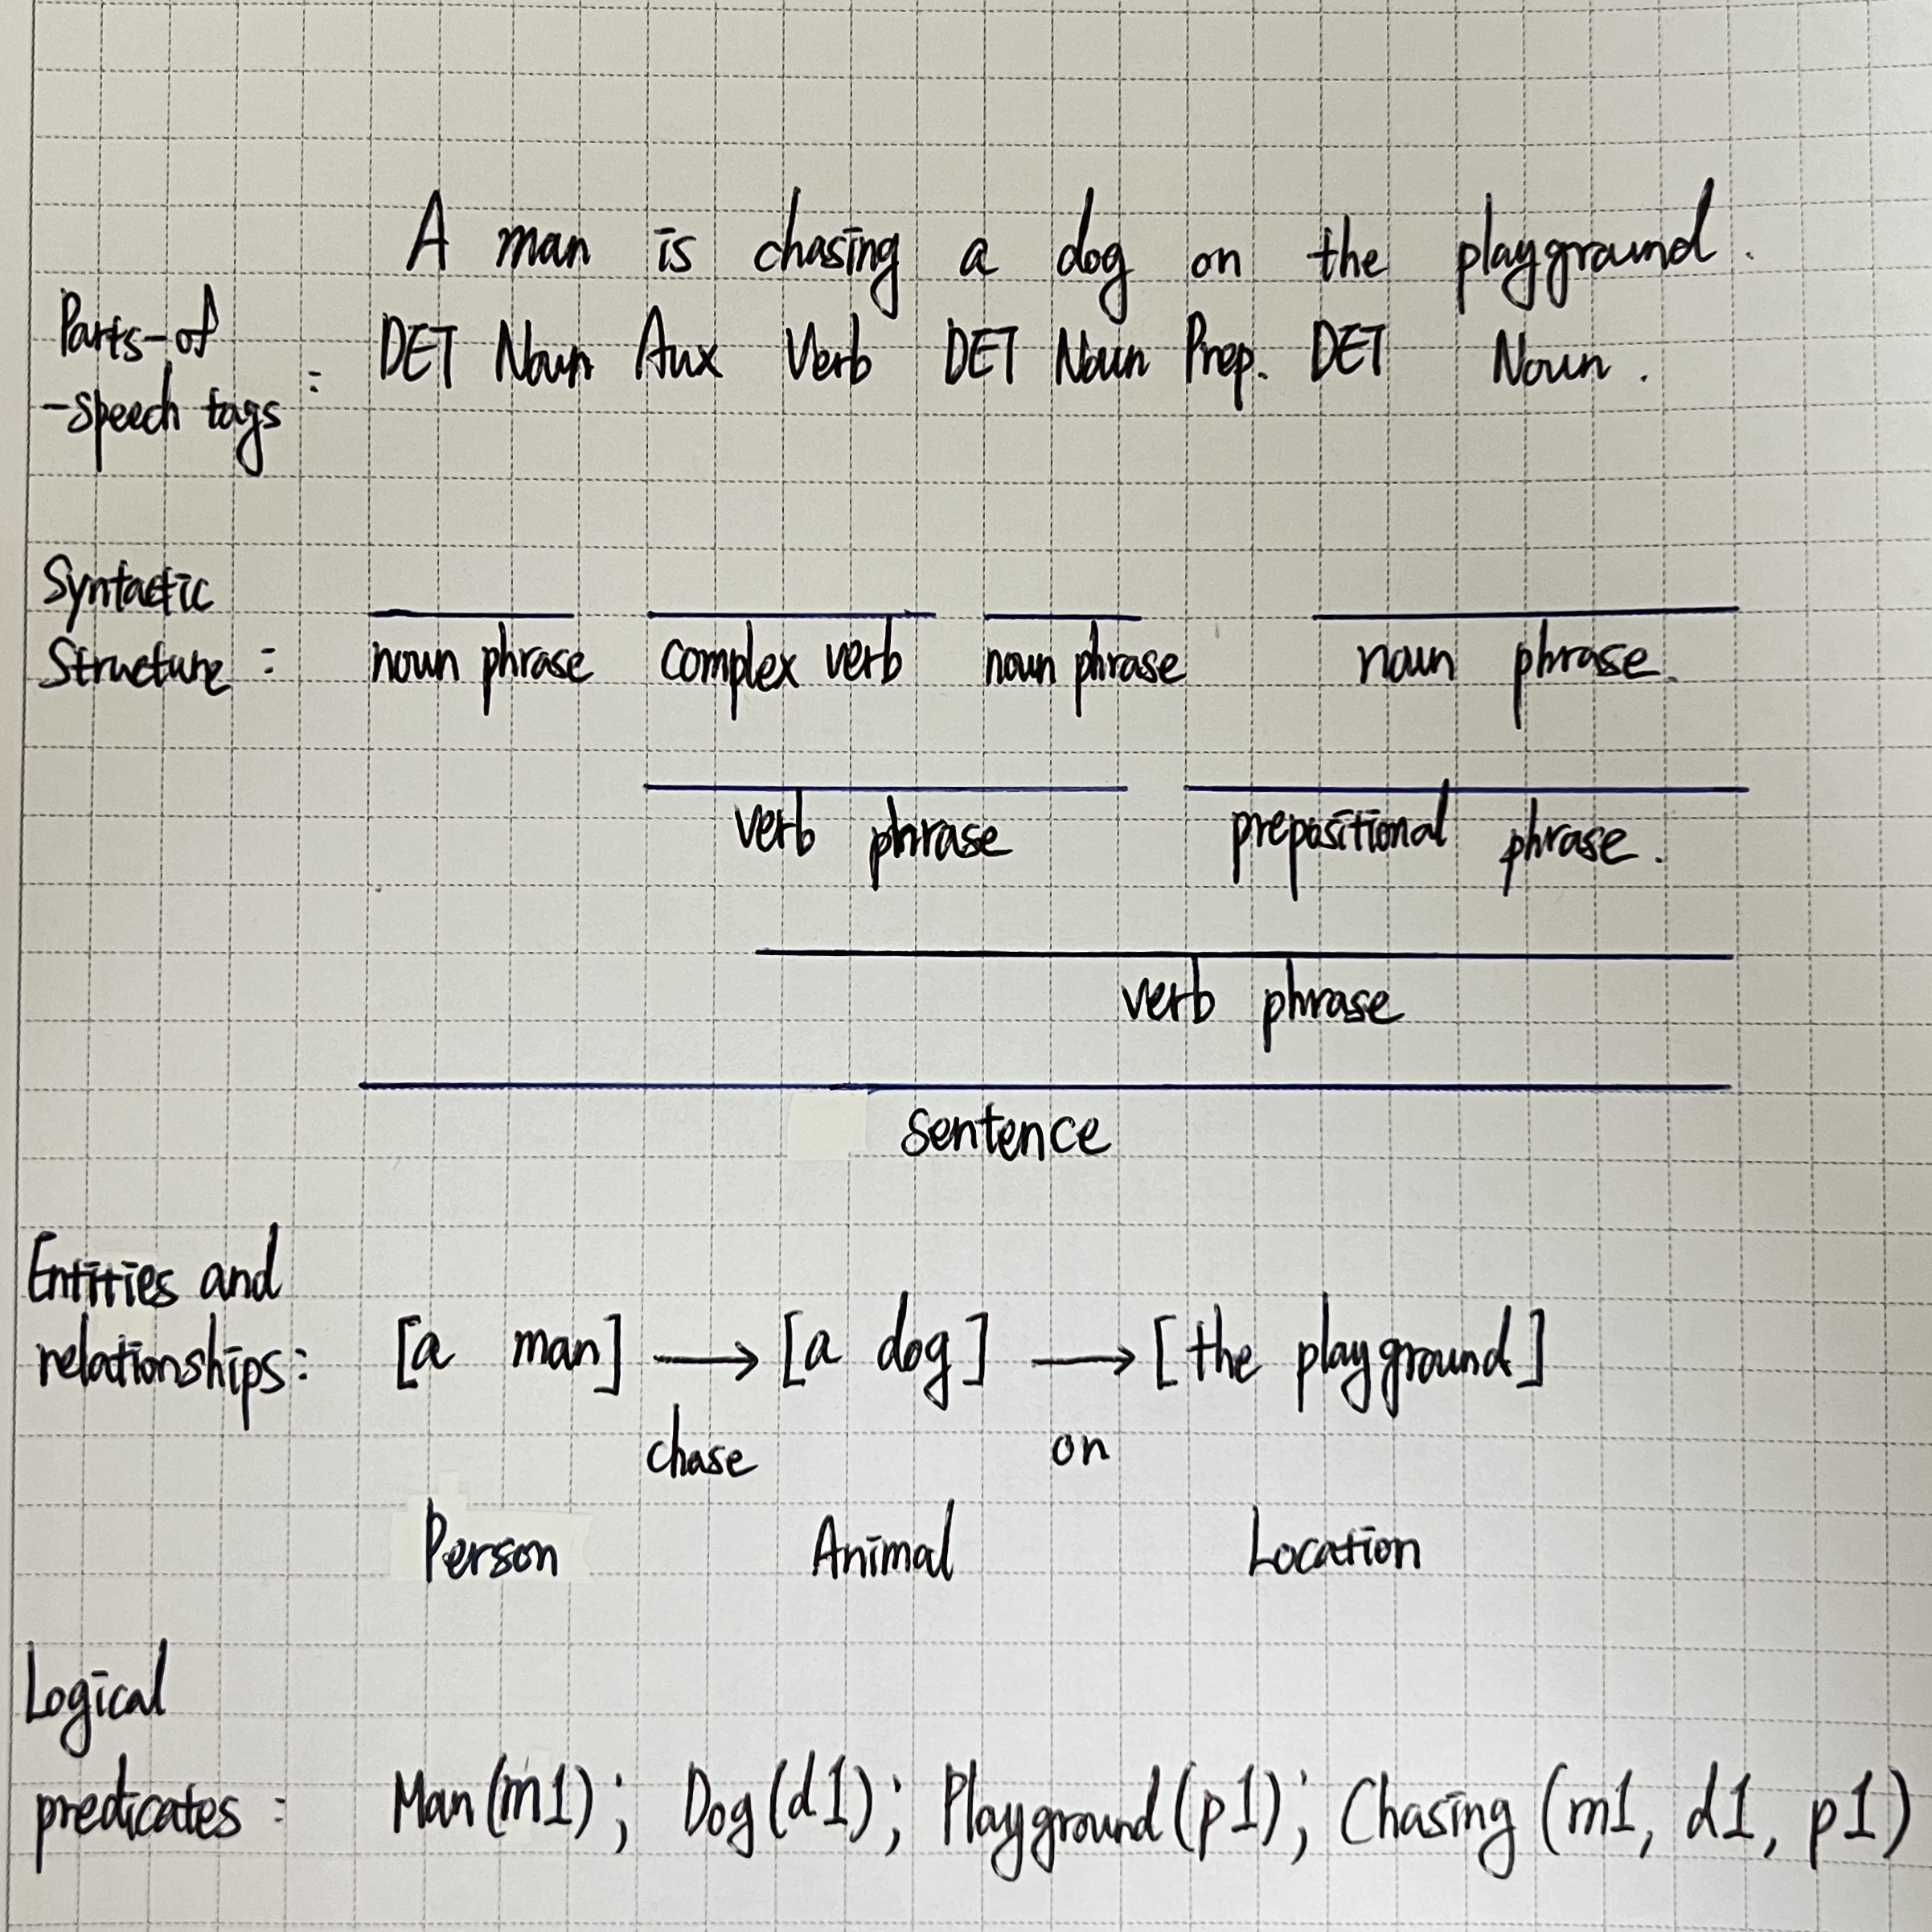 A man is chasing a dog on the playground.
Parts-of
-speech tags : DET Noun Aux Verb DET Noun Prep. DET Noun.
Syntactic
Structure : noun phrase complex verb noun phrase noun phrase.
verb phrase prepositional phrase.
verb phrase
sentence
Entities and
relationships: [a man] → [a dog] → [the playground]
chase on
Person Animal Location
Logical
predicates : Man(m1); Dog(d1); Playground(p1); Chasing (m1, d1, p1)